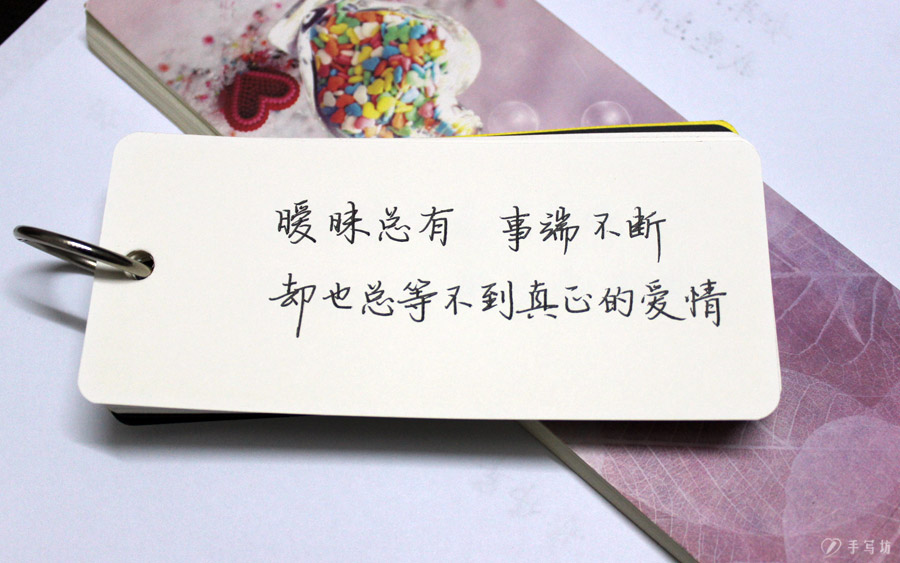 暧昧总有 事端不断
却也总等不到真正的爱情
手写坊